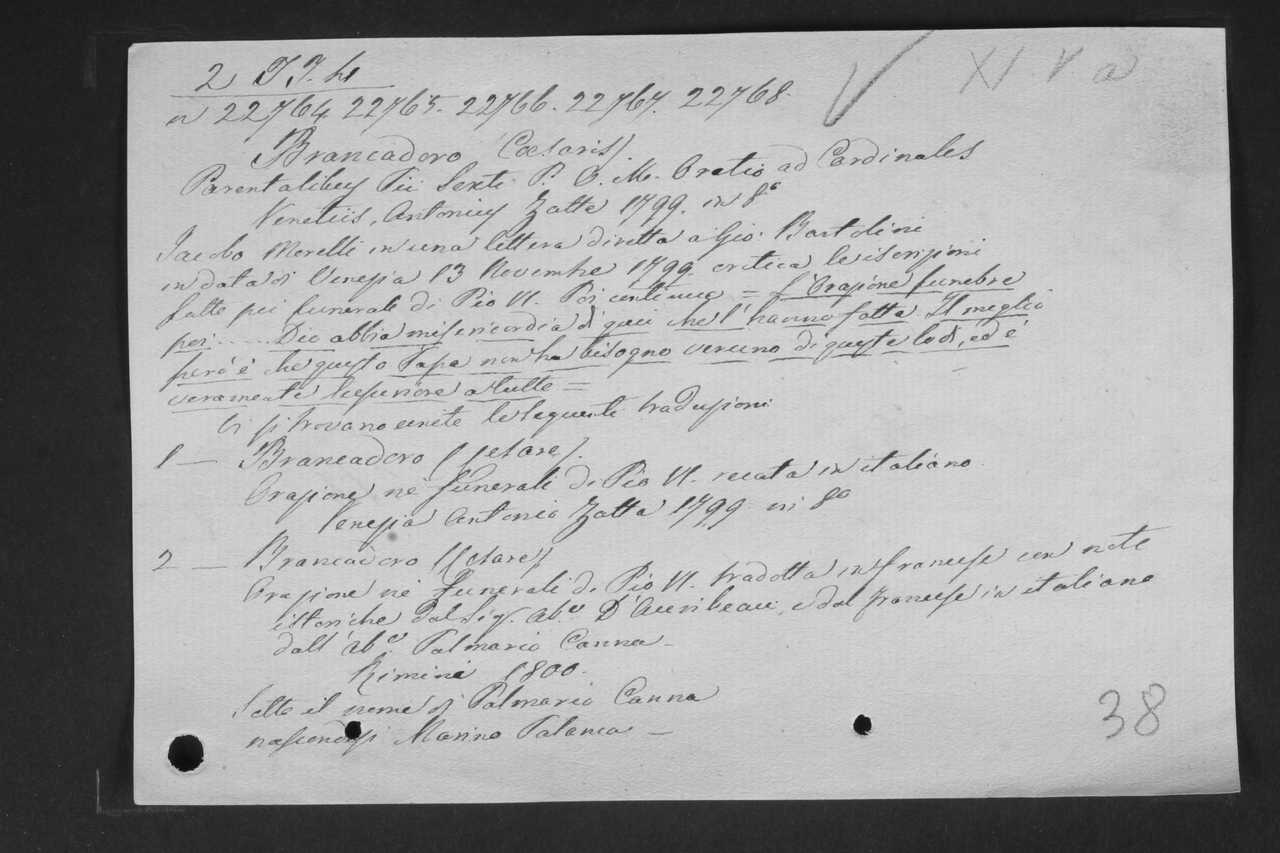 XI V a
2 TT. h
n 22764 22765. 22766. 22767. 22768.
Brancadoro (Cæsaris)
Parentalibus Pii Sexti P. O. M. Oratio ad Cardinales
Venetiis, Antonius Zatta 1799. in 8°
Jacobo Morelli in una lettera diretta a Gio: Bartolini
in data di Venezia 13 Novembre 1799. critica le iscrizioni
fatte pei funerali di Pio VI. Poi continua = l'Orazione funebre
poi ..... Dio abbia misericordia di quei che l'hanno fatta. Il meglio
però è che questo Papa non ha bisogno veruno di queste lodi, ed è
veramente superiore a tutte =
Vi si trovano unite le seguenti traduzioni
1 — Brancadoro (Cesare).
Orazione ne' funerali di Pio VI. recata in italiano
Venezia Antonio Zatta 1799. in 8°
2 — Brancadoro (Cesare)
Orazione ne' Funerali di Pio VI. tradotta in francese con note
istoriche dal Sig. Ab.e D'Auribeau, e dal francese in italiano
dall'ab.e Palmario Canna —
Rimini 1800.
Sotto il nome di Palmario Canna
nascondesi Marino Palanca —
38